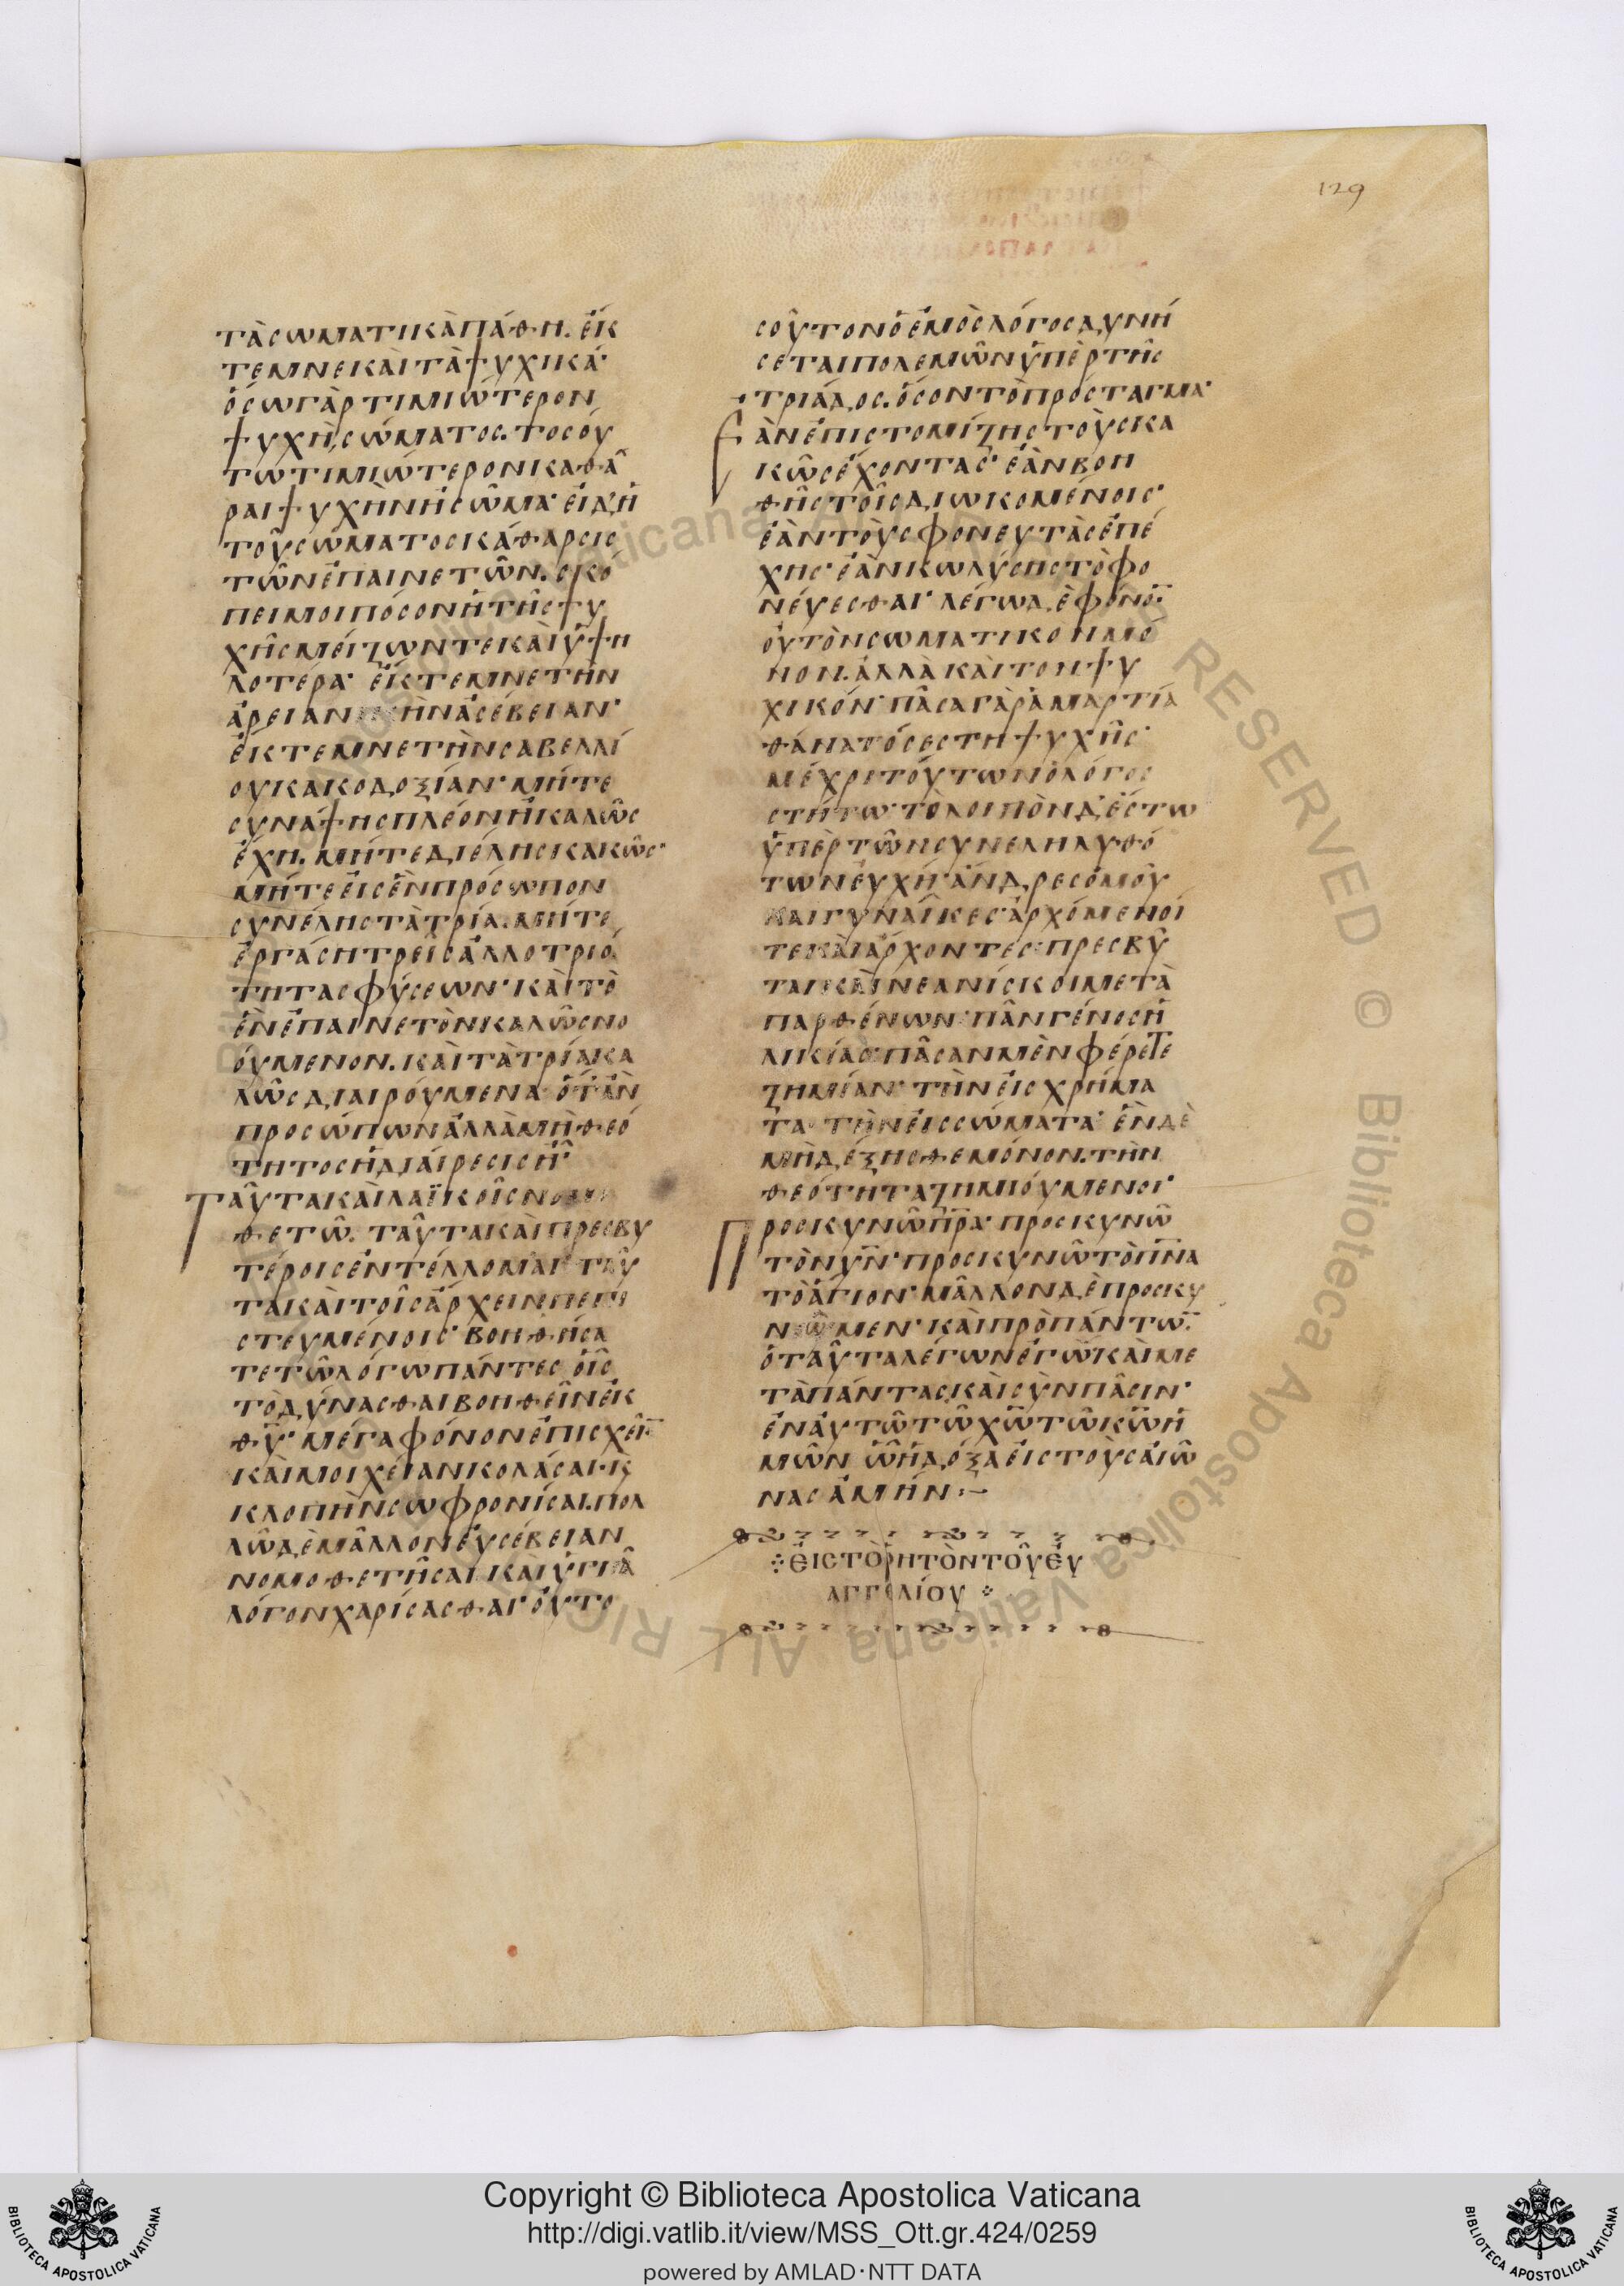 129
τὰσωματικὰπάθη. ἔκ
τεμνεκαὶτὰψυχικά·
ὅσωγὰρτιμιώτερον
ψυχὴσώματος. τοσού
τωτιμιώτερονκαθᾶ
ραιψυχὴνἢσῶμα· εἰδἡ
τοῦσώματοςκάθαρσις
τῶνἐπαινετῶν. σκό
πειμοιπόσονἡτῆςψυ
χῆςμείζωντεκαὶὑψη
λοτέρα· ἔκτεμνετὴν
ἀρειανικὴνἀσέβειαν·
ἔκτεμνετὴνσαβελλί
ουκακοδοξίαν· μήτε
συνάψηςπλέονἢκαλῶς
ἔχη. μήτεδιέληςκακῶς·
μήτεεἰςἓνπρόσωπον
συνέληςτὰτρία. μήτε
ἐργάσητρεῖςἀλλοτριό
τηταςφύσεων· καὶτὸ
ἓνἐπαινετὸνκαλῶςνο
ούμενον. καὶτὰτρίακα
λῶςδιαιρούμενα· ὅτἂν
προσώπωνἀλλὰμὴθεό
τητοςἡδιαίρεσιςἦ·
Ταῦτακαὶλαϊκοῖςνομο
θετῶ. ταῦτακαὶπρεσβυ
τέροιςἐντέλλομαι· ταῦ
τακαὶτοῖςἄρχεινπεπι
στευμένοις· βοηθήσα
τετῶλόγωπάντες οἷς
τὸδύνασθαιβοηθεῖνἐκ
θ̅υ̅· μέγαφόνονἐπισχεῖ̅
καὶμοιχείανκολάσαι· κ̣
κλοπὴνσωφρονίσαι. πολ
λῶδὲμᾶλλονεὐσέβειαν
νομοθετῆσαι καὶὑγιᾶ
λόγονχαρίσασθαι· οὔτο
σοῦτονὁἐμὸςλόγοςδυνή
σεταιπολεμῶνὑπὲρτῆς
τριάδος. ὅσοντὸπρόσταγμα·
Ἐὰνἐπιστομίζηςτοὺςκα
κῶςἔχοντας· ἐὰνβοη
θῆςτοῖςδιωκομένοις·
ἐὰντοὺςφονευτὰςἐπέ
χης· ἐὰνκωλύσηςτὸφο
νέυεσθαι· λέγωδὲφόνο̅·
οὐτὸνσωματικονμό
νον. ἀλλὰκαὶτονψυ
χικόν· πᾶσαγὰρἁμαρτία
θάνατόςεστηψυχῆς·
μέχριτούτωνὁλόγος
στήτω· τὸλοιπὸνδ'ἔστω
ὑπὲρτῶνσυνεληλυθό
τωνεὐχή· ἄνδρεςὁμοῦ
καιγυναῖκες· ἀρχόμενοί
τεκαὶἄρχοντες· πρεσβῦ
ταικαὶνεανίσκοιμετὰ
παρθένων· πᾶνγένοςἡ
λικίας· πᾶσανμὲνφέρετε
ζημίαν· τὴνεἰςχρήμα
τα· τὴνεἰςσώματα· ἓνδὲ
μὴδέξησθεμόνον. τὴν
θεότηταζημιούμενοι·
Προσκυνῶπ̅ρ̅α· προσκυνῶ
τὸνυ̅ν̅· προσκυνῶτὸπ̅ν̅α
τὸἅγιον· μᾶλλονδὲπροσκυ
νῶμεν· καὶπρὸπάντω̅·
ὁταῦταλέγωνἐγὼ· καὶμε
τὰπάντας, καὶσὺνπᾶσιν·
ἐναὐτῶτῶχ̅ω̅τῶκ̅ω̅ἡ
μῶν ὧἡδόξαεἰςτοὺςαἰῶ
νας ἀμήν :–
εἰςτὸῥητὸντοῦεὐ
αγγελίου
Copyright © Biblioteca Apostolica Vaticana
http://digi.vatlib.it/view/MSS_Ott.gr.424/0259
powered by AMLAD·NTT DATA
BIBLIOTECA APOSTOLICA VATICANA
BIBLIOTECA APOSTOLICA VATICANA